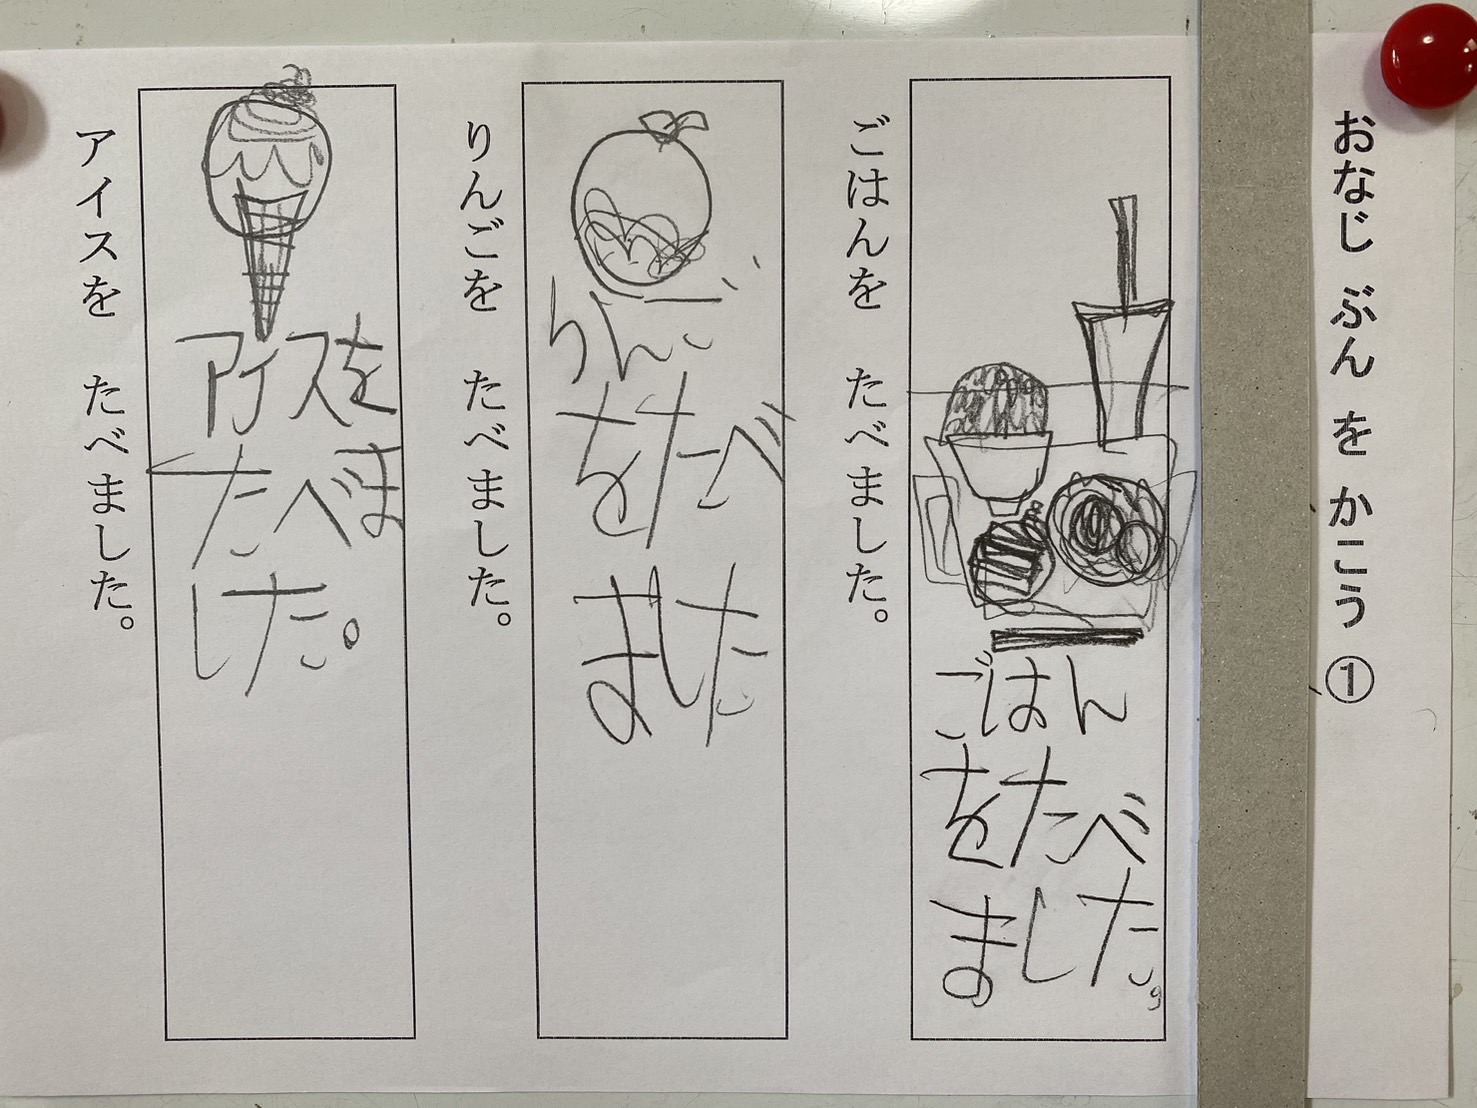 おなじ ぶん を かこう ①
ごはんを たべました。
ごはん
をたべ
ました。
りんごを たべました。
りんご
をたべ
ました
アイスを たべました。
アイスを
たべま
した。